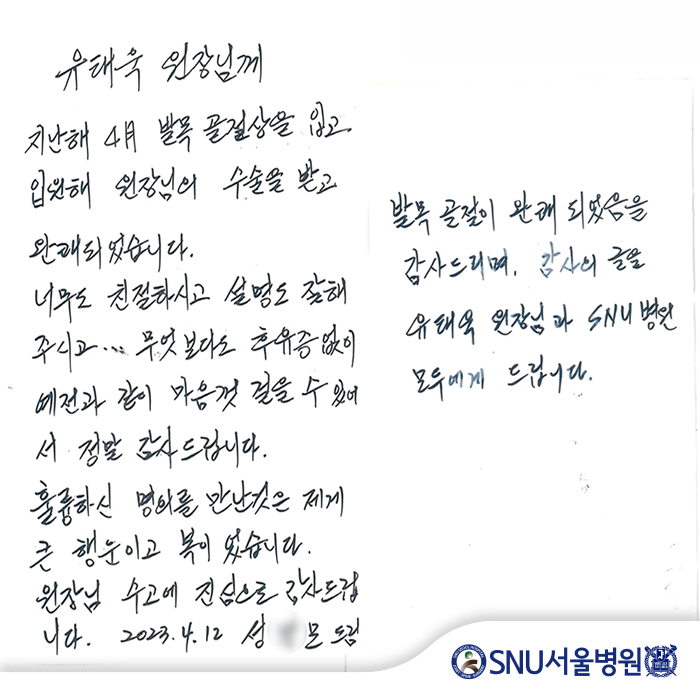 유태욱 원장님께
지난해 4月 발목 골절상을 입고
입원해 원장님의 수술을 받고
완쾌되었습니다.
너무도 친절하시고 설명도 잘해
주시고... 무엇보다도 후유증없이
예전과 같이 마음껏 걸을 수 있어
서 정말 감사드립니다.
훌륭하신 명의를 만난것은 제게
큰 행운이고 복이었습니다.
원장님 수고에 진심으로 감사드립
니다. 2023.4.12 성 모 드림
발목 골절이 완쾌되었음을
감사드리며, 감사의 글을
유태욱 원장님과 SNU병원
모두에게 드립니다.
SNU서울병원